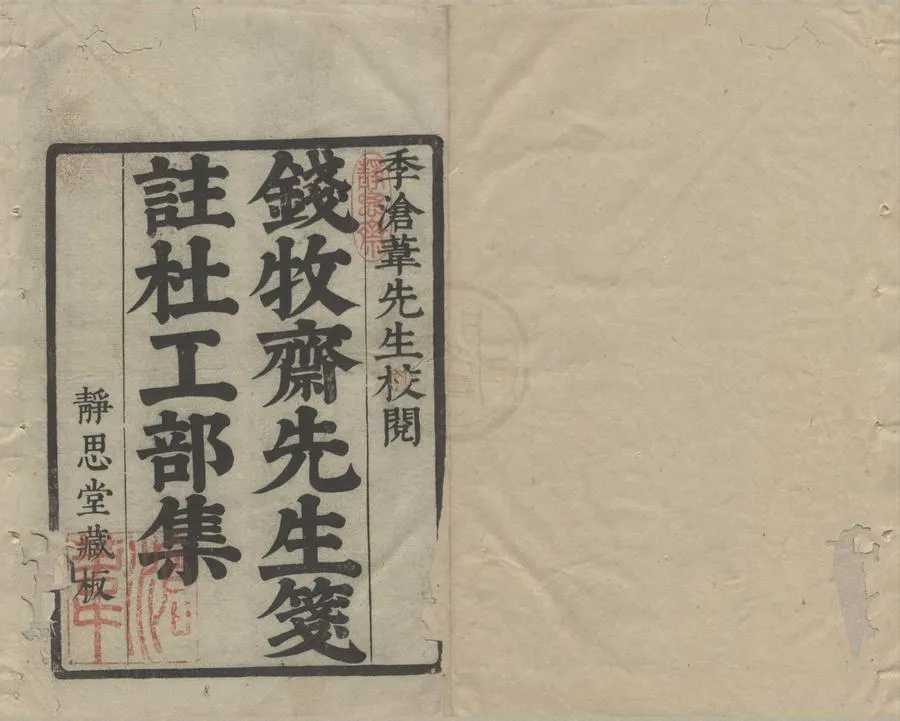 季滄葦先生校閱
錢牧齋先生箋
註杜工部集
靜思堂藏板
滄葦